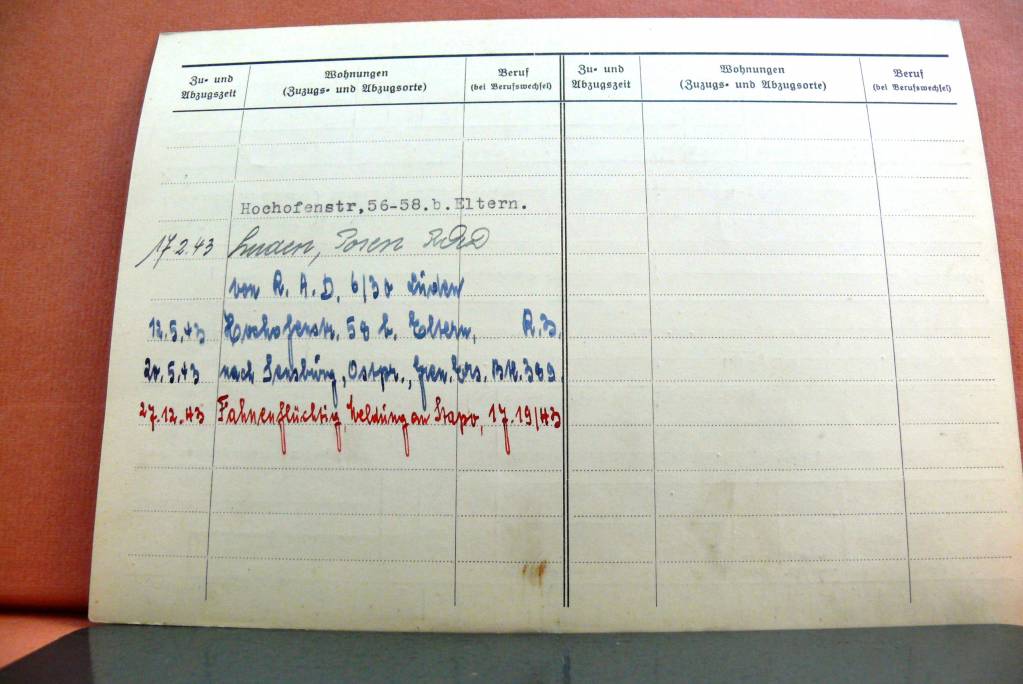 Zu- und Abzugszeit
Wohnungen
(Zuzugs- und Abzugsorte)
Beruf
(bei Berufswechsel)
Zu- und Abzugszeit
Wohnungen
(Zuzugs- und Abzugsorte)
Beruf
(bei Berufswechsel)
Hochofenstr,56-58.b.Eltern.
17.2.43 Posen RAD
von R. A. D. 6/30
12.5.43 Hochofenstr. 58 b. Eltern. R.B.
20.5.43 nach Sensburg, Ostpr., Gren. Ers. Btl. 389.
27.12.43 Fahnenflüchtig, Meldung an Stapo, 17.19/43